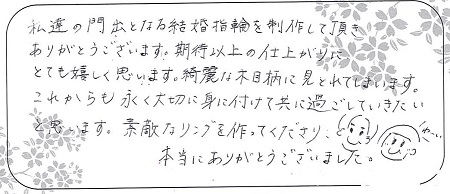 私達の門出となる結婚指輪を制作して頂き
ありがとうございます。期待以上の仕上がりに
とても嬉しく思います。綺麗な木目柄に見とれてしまいます。
これからも永く大切に身に付けて共に過ごしていきたい
と思います。素敵なリングを作ってくださり、
わーい
本当にありがとうございました。